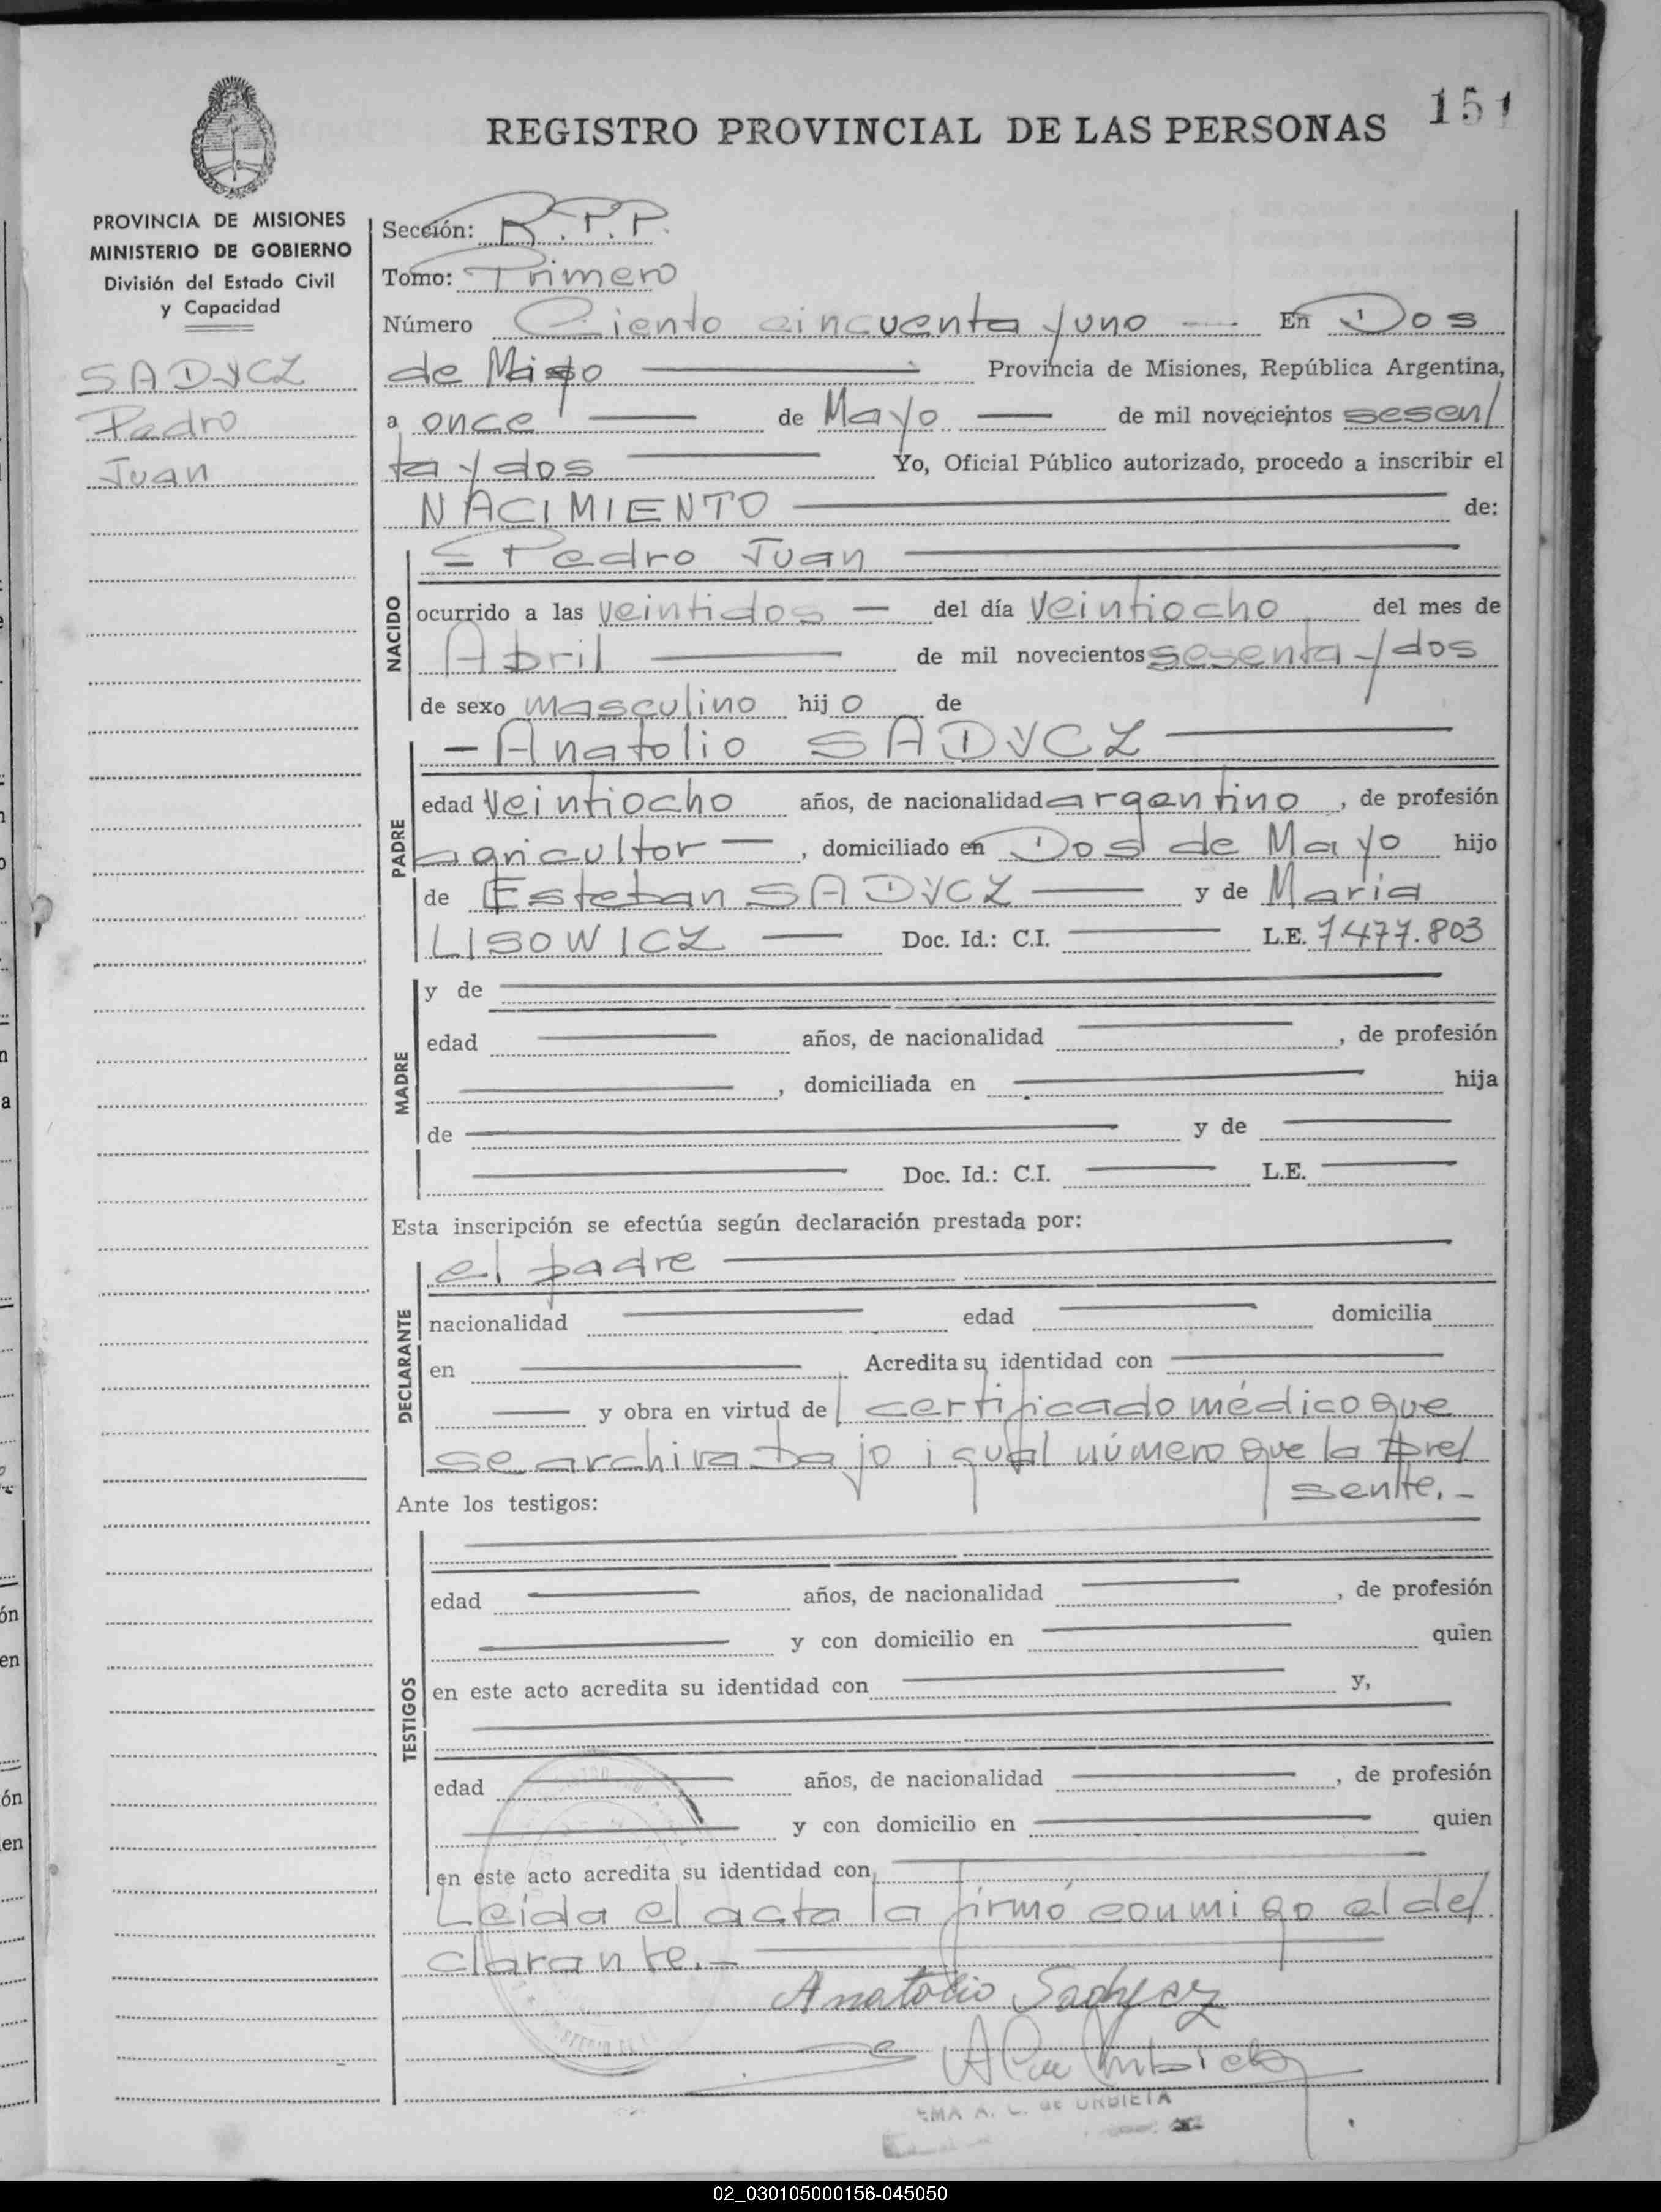 151
REGISTRO PROVINCIAL DE LAS PERSONAS
PROVINCIA DE MISIONES
MINISTERIO DE GOBIERNO
División del Estado Civil
y Capacidad
SADYCZ
Pedro
Juan
Sección: R.P.P.
Tomo: Primero
Número Ciento cincuenta y uno — En Dos
de Mayo — Provincia de Misiones, República Argentina,
a once — de Mayo — de mil novecientos sesen/
ta y dos — Yo, Oficial Público autorizado, procedo a inscribir el
NACIMIENTO — de:
NACIDO
= Pedro Juan —
ocurrido a las veintidos — del día veintiocho del mes de
Abril — de mil novecientos sesenta y dos
de sexo masculino hijo de
PADRE
— Anatolio SADYCZ —
edad veintiocho años, de nacionalidad argentino, de profesión
agricultor —, domiciliado en Dos de Mayo hijo
de Esteban SADYCZ — y de Maria
LISOWICZ — Doc. Id.: C.I. — L.E. 7477.803
MADRE
y de —
edad — años, de nacionalidad —, de profesión
—, domiciliada en — hija
de — y de —
— Doc. Id.: C.I. — L.E. —
Esta inscripción se efectúa según declaración prestada por:
DECLARANTE
el padre —
nacionalidad — edad — domicilia
en — Acredita su identidad con —
— y obra en virtud del certificado médico que
se archiva bajo igual número que la pre/
sente.-
Ante los testigos:
TESTIGOS
edad — años, de nacionalidad —, de profesión
— y con domicilio en — quien
en este acto acredita su identidad con — y,
edad — años, de nacionalidad —, de profesión
— y con domicilio en — quien
en este acto acredita su identidad con, —
Leída el acta la firmó conmigo el de/
clarante.- —
Anatolio Sadycz
A. C. de URBIETA
02_030105000156-045050